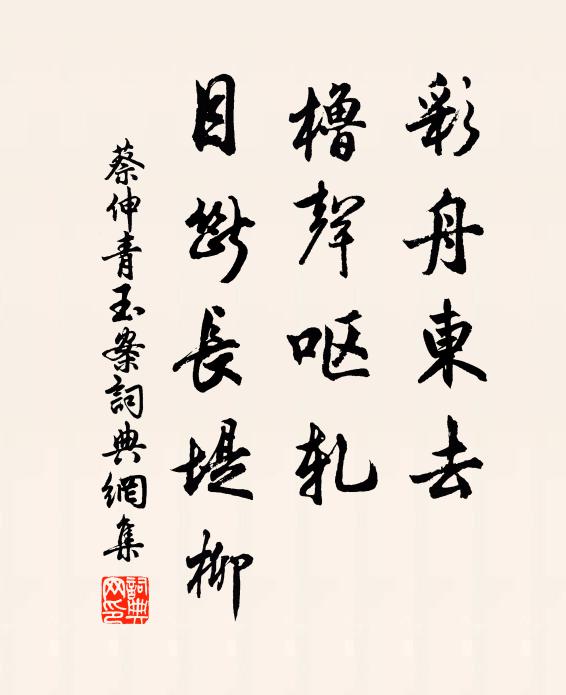 彩舟東去
櫓聲呕轧
目斷長堤柳
蔡伸青玉案詞典網集
詞典網印